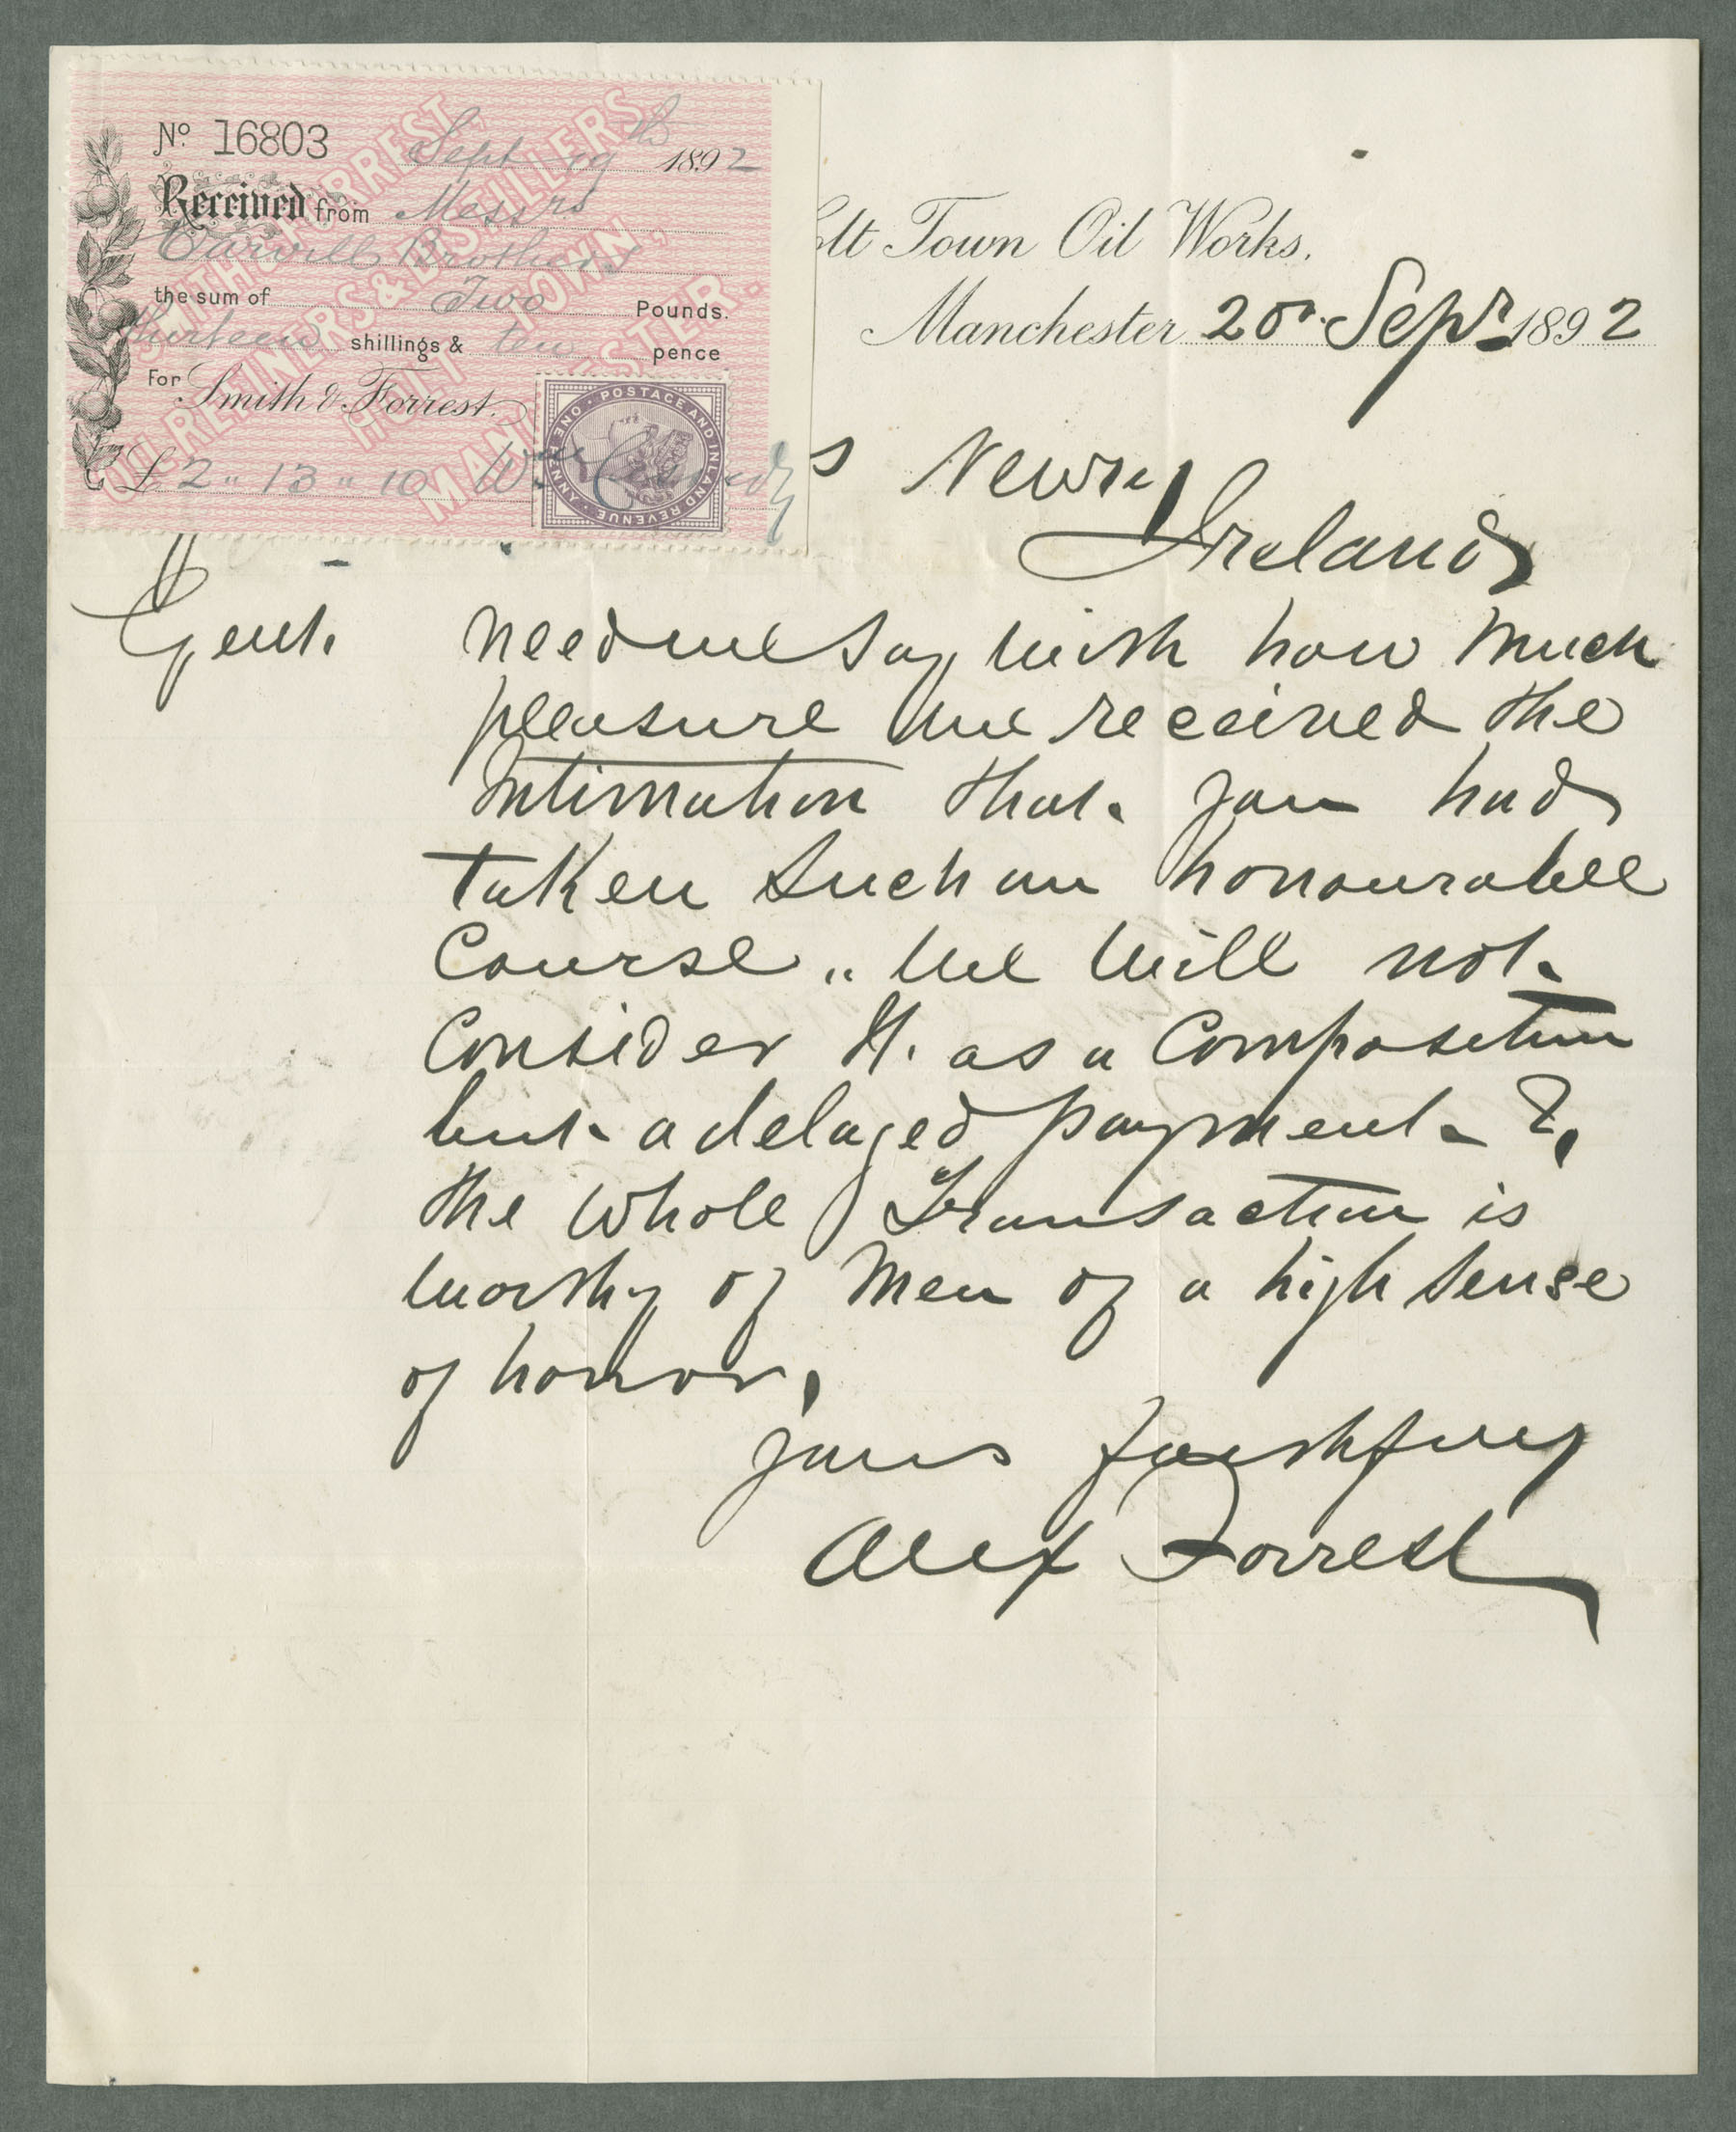 No. 16803 Sept 19th 1892
Received from Messrs
Carvill Brothers
the sum of Two Pounds.
thirteen shillings & ten pence
For Smith & Forrest.
£2 " 13 " 10 Wm
SMITH & FORREST,
OIL REFINERS & DISTILLERS,
HOLT TOWN,
MANCHESTER.
POSTAGE AND INLAND REVENUE · ONE PENNY ·
olt Town Oil Works.
Manchester 20 Sepr 1892
s Newry
Ireland
Gent.
need we say with how much
pleasure we received the
intimation that you had
taken such an honourable
Course " We will not
Consider it as a Composition
but a delayed payment &
the whole Transaction is
worthy of men of a high sense
of honor,
yours faithfully
Alex Forrest